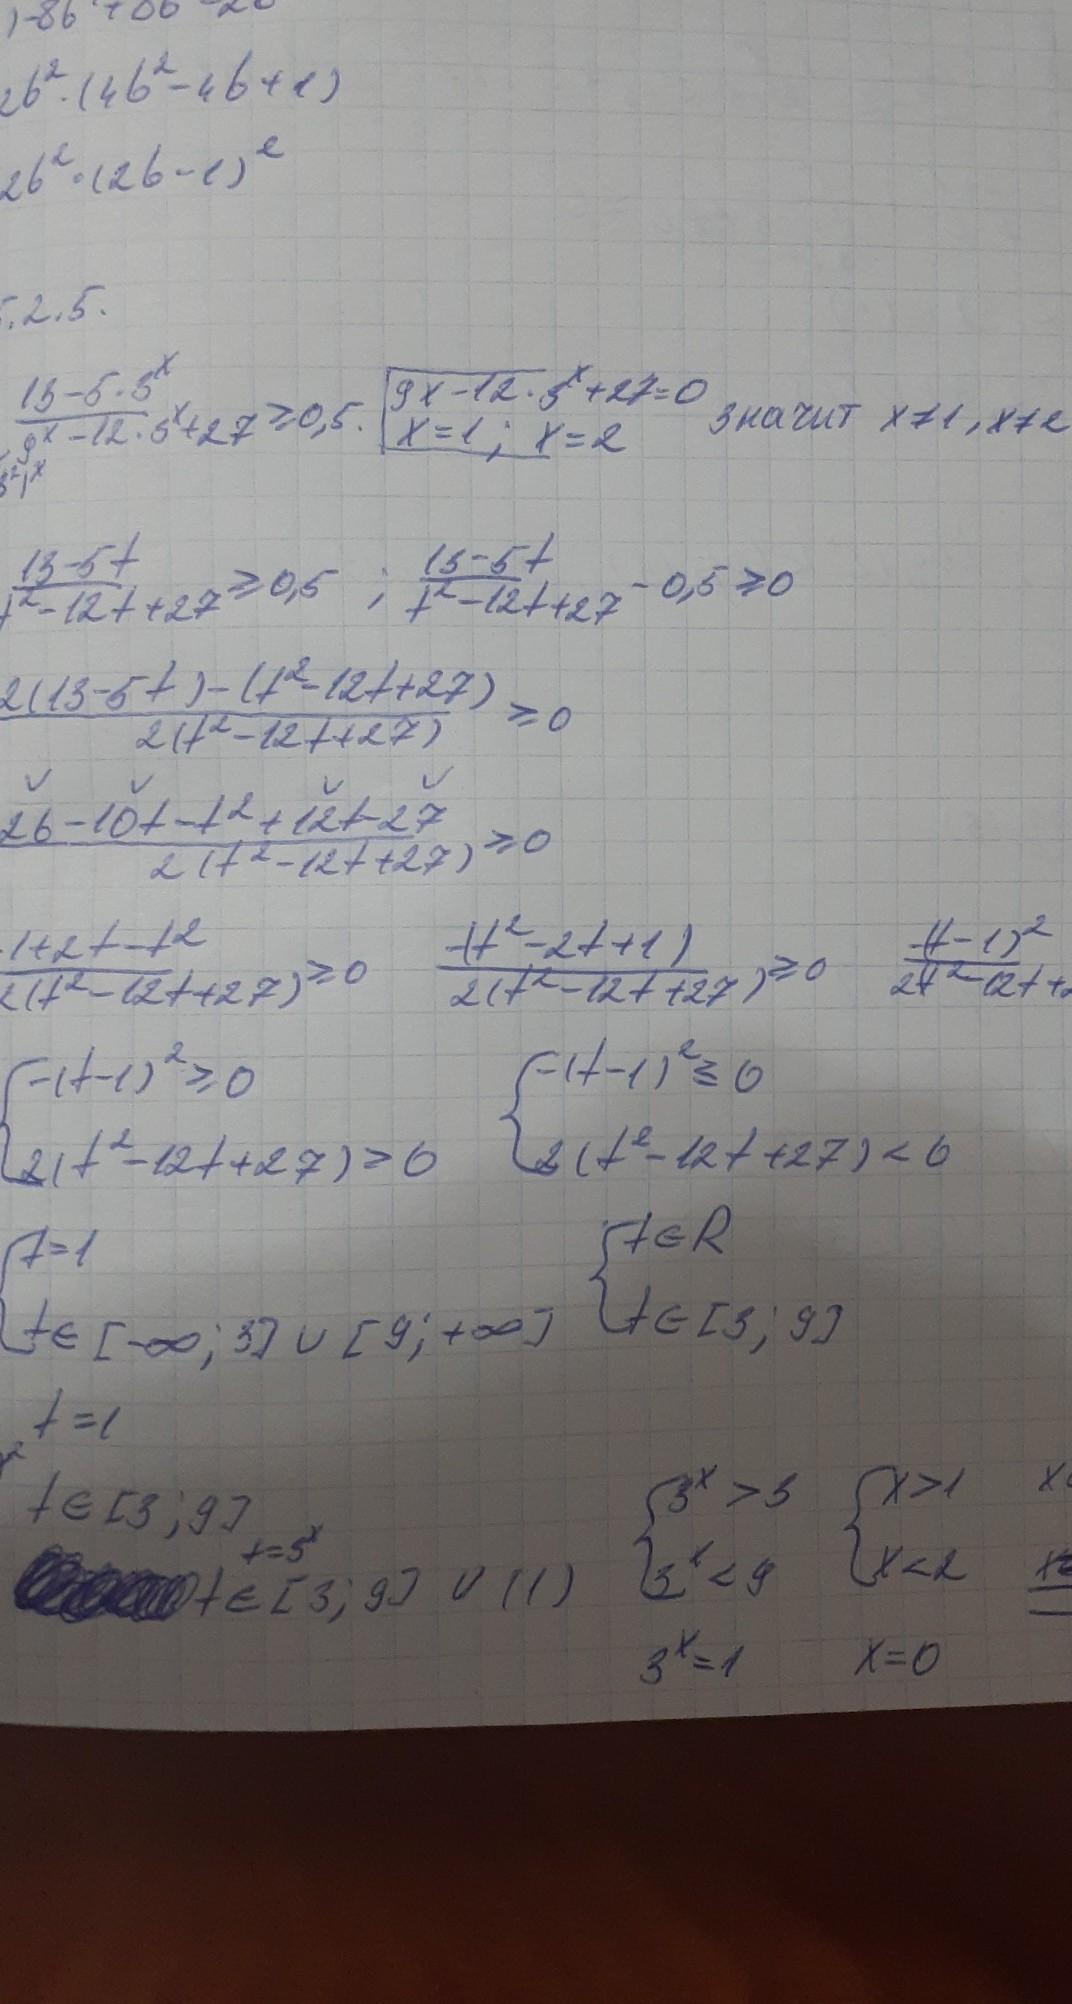 2b²·(4b²-4b+1)
2b²·(2b-1)²
.2.5.
13-5·3ˣ / 9ˣ-12·3ˣ+27 ≥0,5. 9x-12·3ˣ+27=0 значит x≠1, x≠2
x=1; x=2
13-5t / t²-12t+27 ≥0,5 ; 13-5t / t²-12t+27 -0,5≥0
2(13-5t)-(t²-12t+27) / 2(t²-12t+27) ≥0
26-10t-t²+12t-27 / 2(t²-12t+27) ≥0
-1+2t-t² / 2(t²-12t+27) ≥0 -(t²-2t+1) / 2(t²-12t+27) ≥0 -(t-1)² / 2t²-12t+2
{ -(t-1)²≥0 { -(t-1)²≤0
2(t²-12t+27)>0 2(t²-12t+27)<0
{ t=1 { t∈R
t∈[-∞;3]∪[9;+∞] t∈[3;9]
t=1
t∈[3;9] { 3ˣ>3 { x>1
t=3ˣ
t∈[3;9] ∪ (1) 3ˣ<9 x<2
3ˣ=1 x=0